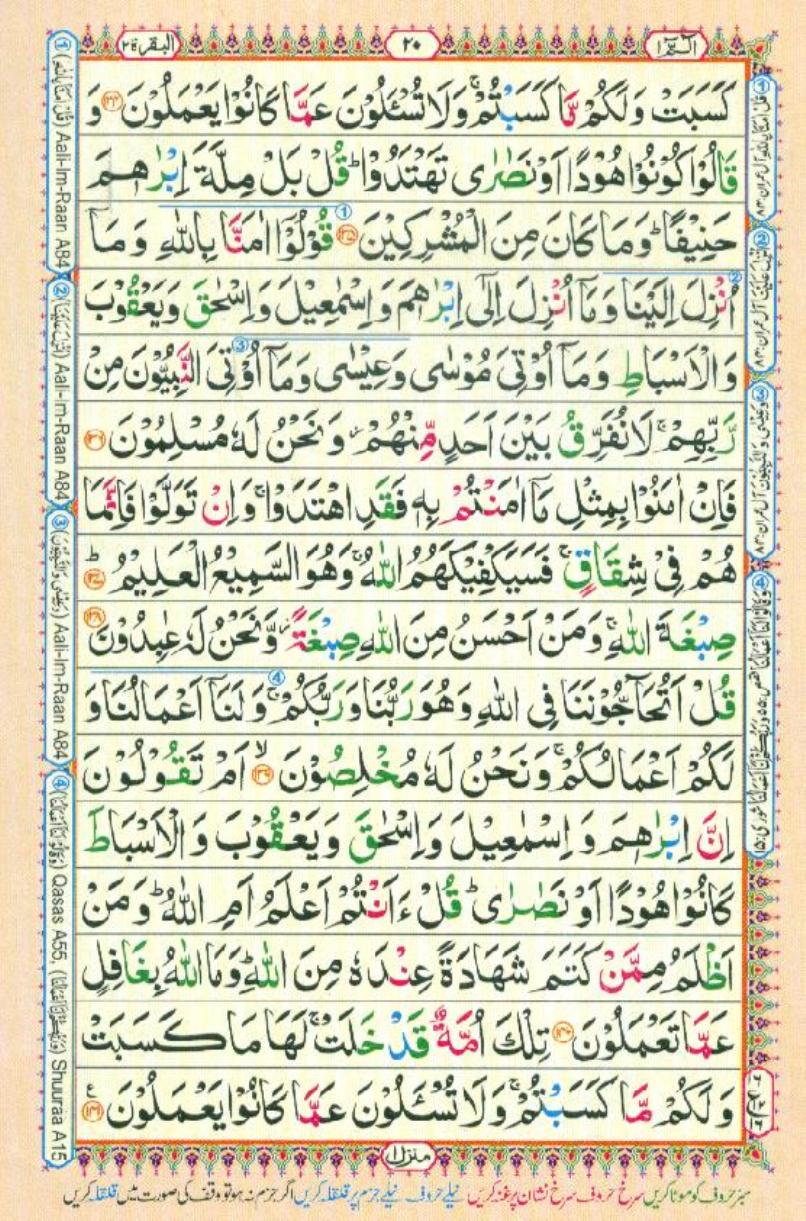 الٓمّٓ ١
٢٠
البقرة ٢
كَسَبَتْ وَلَكُمْ مَّا كَسَبْتُمْ ۚ وَلَا تُسْـَٔلُوْنَ عَمَّا كَانُوْا يَعْمَلُوْنَ ﴿۱۳۴﴾ وَ
قَالُوْا كُوْنُوْا هُوْدًا اَوْ نَصٰرٰى تَهْتَدُوْا ؕ قُلْ بَلْ مِلَّةَ اِبْرٰهٖمَ
حَنِيْفًا ؕ وَمَا كَانَ مِنَ الْمُشْرِكِيْنَ ﴿۱۳۵﴾ قُوْلُوْۤا اٰمَنَّا بِاللّٰهِ وَمَاۤ
اُنْزِلَ اِلَيْنَا وَمَاۤ اُنْزِلَ اِلٰٓى اِبْرٰهٖمَ وَاِسْمٰعِيْلَ وَاِسْحٰقَ وَيَعْقُوْبَ
وَالْاَسْبَاطِ وَمَاۤ اُوْتِيَ مُوْسٰى وَعِيْسٰى وَمَاۤ اُوْتِيَ النَّبِيُّوْنَ مِنْ
رَّبِّهِمْ ۚ لَا نُفَرِّقُ بَيْنَ اَحَدٍ مِّنْهُمْ ۖ وَنَحْنُ لَهٗ مُسْلِمُوْنَ ﴿۱۳۶﴾
فَاِنْ اٰمَنُوْا بِمِثْلِ مَاۤ اٰمَنْتُمْ بِهٖ فَقَدِ اهْتَدَوْا ۚ وَاِنْ تَوَلَّوْا فَاِنَّمَا
هُمْ فِيْ شِقَاقٍ ۚ فَسَيَكْفِيْكَهُمُ اللّٰهُ ۚ وَهُوَ السَّمِيْعُ الْعَلِيْمُ ﴿۱۳۷﴾ؕ
صِبْغَةَ اللّٰهِ ۚ وَمَنْ اَحْسَنُ مِنَ اللّٰهِ صِبْغَةً ؗ وَّنَحْنُ لَهٗ عٰبِدُوْنَ ﴿۱۳۸﴾
قُلْ اَتُحَآجُّوْنَنَا فِي اللّٰهِ وَهُوَ رَبُّنَا وَرَبُّكُمْ ۚ وَلَنَاۤ اَعْمَالُنَا وَ
لَكُمْ اَعْمَالُكُمْ ۚ وَنَحْنُ لَهٗ مُخْلِصُوْنَ ﴿۱۳۹﴾ۙ اَمْ تَقُوْلُوْنَ
اِنَّ اِبْرٰهٖمَ وَاِسْمٰعِيْلَ وَاِسْحٰقَ وَيَعْقُوْبَ وَالْاَسْبَاطَ
كَانُوْا هُوْدًا اَوْ نَصٰرٰى ؕ قُلْ ءَاَنْتُمْ اَعْلَمُ اَمِ اللّٰهُ ؕ وَمَنْ
اَظْلَمُ مِمَّنْ كَتَمَ شَهَادَةً عِنْدَهٗ مِنَ اللّٰهِ ؕ وَمَا اللّٰهُ بِغَافِلٍ
عَمَّا تَعْمَلُوْنَ ﴿۱۴۰﴾ تِلْكَ اُمَّةٌ قَدْ خَلَتْ ۚ لَهَا مَا كَسَبَتْ
وَلَكُمْ مَّا كَسَبْتُمْ ۚ وَلَا تُسْـَٔلُوْنَ عَمَّا كَانُوْا يَعْمَلُوْنَ ﴿۱۴۱﴾ ع
منزل ١
سبز حروف کو موٹا کریں سرخ حروف سرخ نشان پر غنہ کریں نیلے حروف نیلے جزم پر قلقلہ کریں اگر جزم نہ ہو تو وقف کی صورت میں قلقلہ کریں
① Aali-Im-Raan A84
② Aali-Im-Raan A84
③ Aali-Im-Raan A84
④ Qasas A55, Shuuraa A15